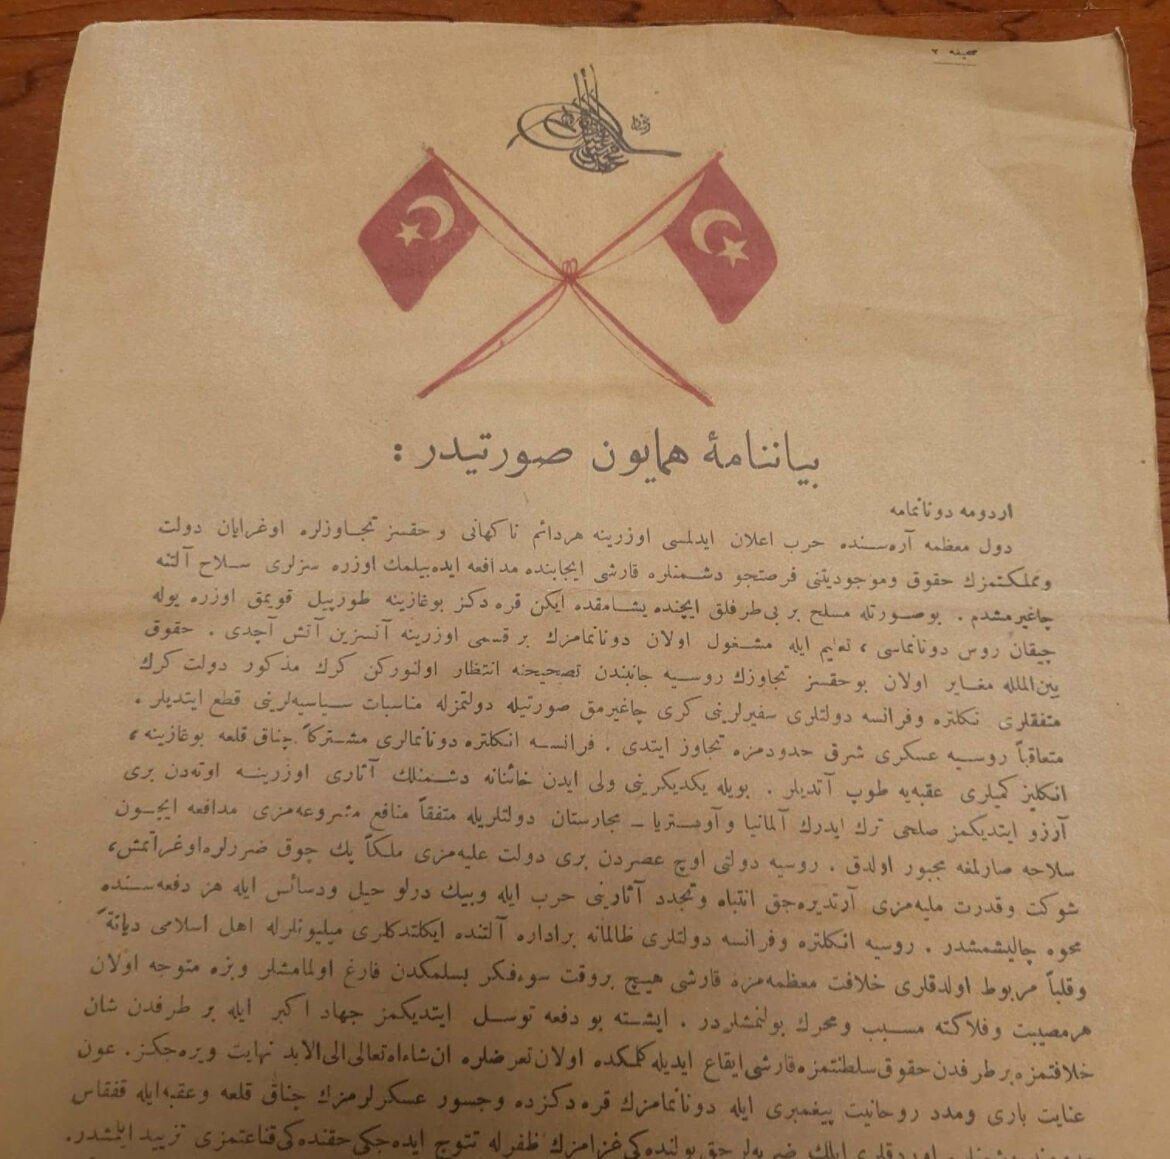 بياننامهٔ همايون صورتيدر :
اردومه دونانمامه
دول معظمه آره‌سنده حرب اعلان ايدلمسى اوزرينه هردائم ناكهانى و حقسز تجاوزلره اوغرايان دولت
ومملكتمزك حقوق وموجوديتنى فرصتجو دشمنلره قارشى ايجابنده مدافعه ايده‌بيلمك اوزره سزلرى سلاح آلتنه
چاغيرمشدم . بوصورتله مسلح بر بى‌طرفلق ايچنده يشامقده ايكن قره دكز بوغازينه طورپيل قويمق اوزره يوله
چيقان روس دونانماسى ، تعليم ايله مشغول اولان دونانمامزك بر قسمى اوزرينه آنسزين آتش آچدى . حقوق
بين‌الملله مغاير اولان بوحقسز تجاوزك روسيه جانبندن تصحيحنه انتظار اولنوركن كرك مذكور دولت كرك
متفقلرى انكلتره وفرانسه دولتلرى سفيرلرينى كرى چاغيرمق صورتيله دولتمزله مناسبات سياسيه‌لرينى قطع ايتديلر .
متعاقباً روسيه عسكرى شرق حدودمزه تجاوز ايتدى . فرانسه انكلتره دونانمالرى مشتركاً چناق قلعه بوغازينه ،
انكليز كميلرى عقبه‌يه طوپ آتديلر . بويله يكديكرينى ولى ايدن خائنانه دشمنلك آثارى اوزرينه اوته‌دن برى
آرزو ايتديكمز صلحى ترك ايدرك آلمانيا و آوستريا ـ مجارستان دولتلريله متفقاً منافع مشروعه‌مزى مدافعه ايچون
سلاحه صارلمغه مجبور اولدق . روسيه دولتى اوچ عصردن برى دولت عليه‌مزى ملكاً پك چوق ضررلره اوغراتمش ،
شوكت وقدرت مليه‌مزى آرتديره‌جق انتباه وتجدد آثارينى حرب ايله وبيك درلو حيل ودسائس ايله هر دفعه‌سنده
محوه چاليشمشدر . روسيه انكلتره وفرانسه دولتلرى ظالمانه براداره آلتنده ايكلتدكلرى ميليونلرله اهل اسلامى ديانةً
وقلباً مربوط اولدقلرى خلافت معظمه‌مزه قارشى هيچ بروقت سوءفكر بسلمكدن فارغ اولمامشلر وبزه متوجه اولان
هرمصيبت وفلاكته مسبب ومحرك بولنمشلردر . ايشته بو دفعه توسل ايتديكمز جهاد اكبر ايله بر طرفدن شان
خلافتمزه برطرفدن حقوق سلطنتمزه قارشى ايقاع ايديله كلمكده اولان تعرضلره ان‌شاءاه تعالى الى‌الابد نهايت ويره‌جكز . عون
عنايت بارى ومدد روحانيت پيغمبرى ايله دونانمامزك قره دكزده وجسور عسكرلرمزك چناق قلعه وعقبه‌ايله قفقاس
ايلك ضربه‌لر حق يولنده‌كى غزامزك ظفرله تتوج ايده‌جكى حقنده‌كى قناعتمزى تزييد ايلمشدر.